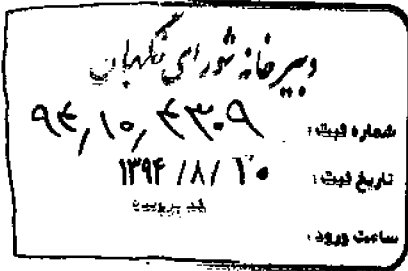 دبیرخانه شورای نگهبان
شماره ثبت: ۹۴٫۱۰٫۴۳۰۹
تاریخ ثبت: ۱۳۹۴/۸/۲۰
ساعت ورود: